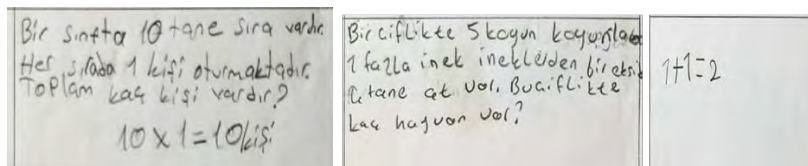 Bir sınıfta 10 tane sıra vardır.
Her sırada 1 kişi oturmaktadır.
Toplam kaç kişi vardır?
10 x 1 = 10 kişi
Bir ciflikte 5 koyun
1 fazla inek ineklerden bir eksi
tane at var. Bu ciflikte
kaç hayvan var?
1+1=2